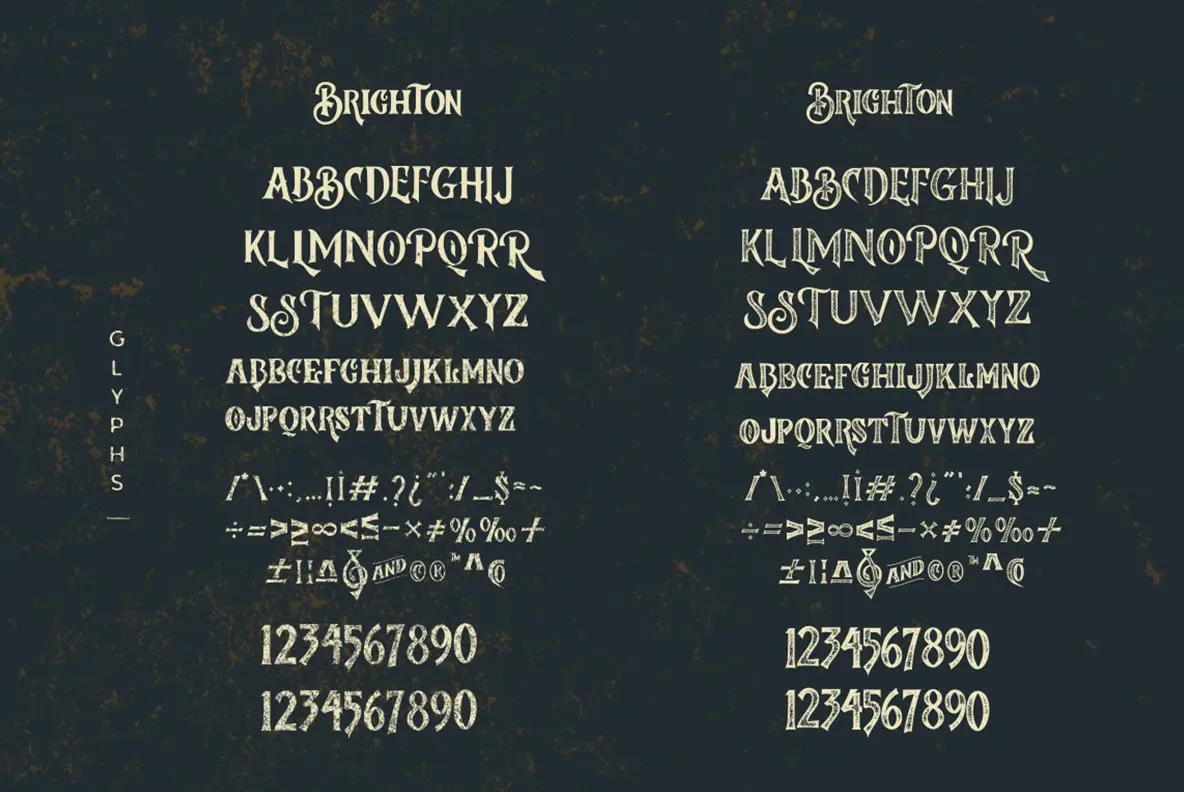 GLYPHS
BRIGHTON
ABBCDEFGHIJ
KLLMNOPQRR
SSTUVWXYZ
ABBCEFGHIJJKLMNO
OJPQRRSTTUVWXYZ
/*\··:,...¡i#.?¿¨":/_$≈~
÷=>≥∞<≤−×≠%‰+
±¦AND©®™^
1234567890
1234567890
BRIGHTON
ABBCDEFGHIJ
KLLMNOPQRR
SSTUVWXYZ
ABBCEFGHIJJKLMNO
OJPQRRSTTUVWXYZ
/*\··:,...¡i#.?¿¨":/_$≈~
÷=>≥∞<≤−×≠%‰+
±¦AND©®™^
1234567890
1234567890